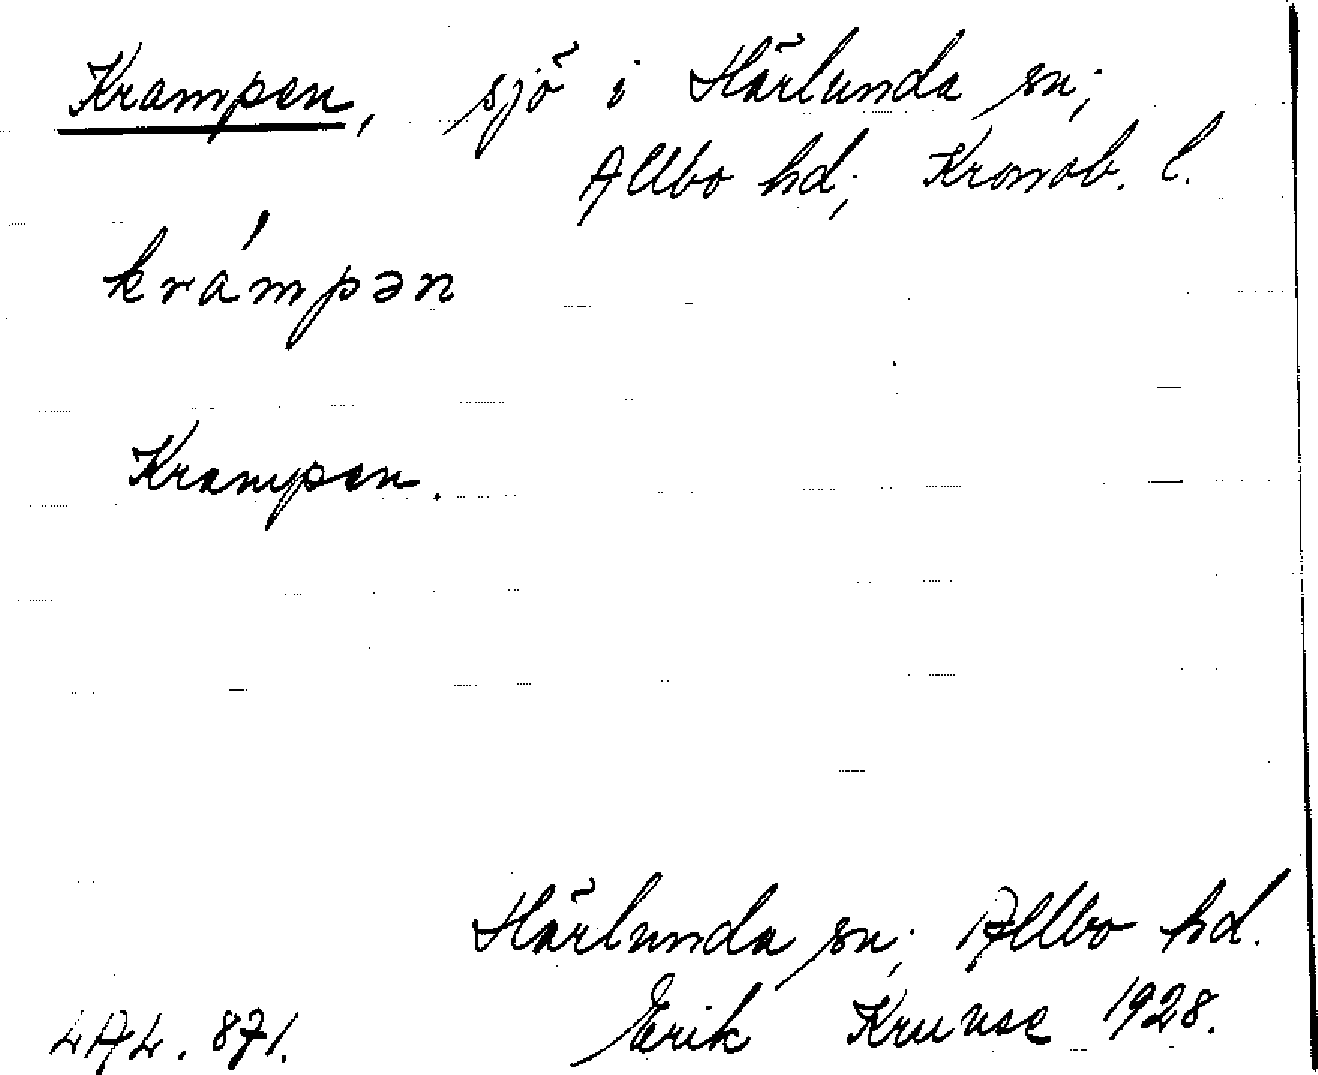 Krampen, sjö i Härlunda sn;
Allbo hd; Kronob. l.
krámpən
Krampen.
Härlunda sn; Allbo hd.
LAL. 871. Erik Kruuse 1928.